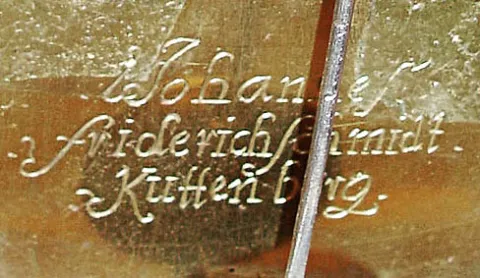 Johannes
Friderich Schmidt.
Kuttenberg.